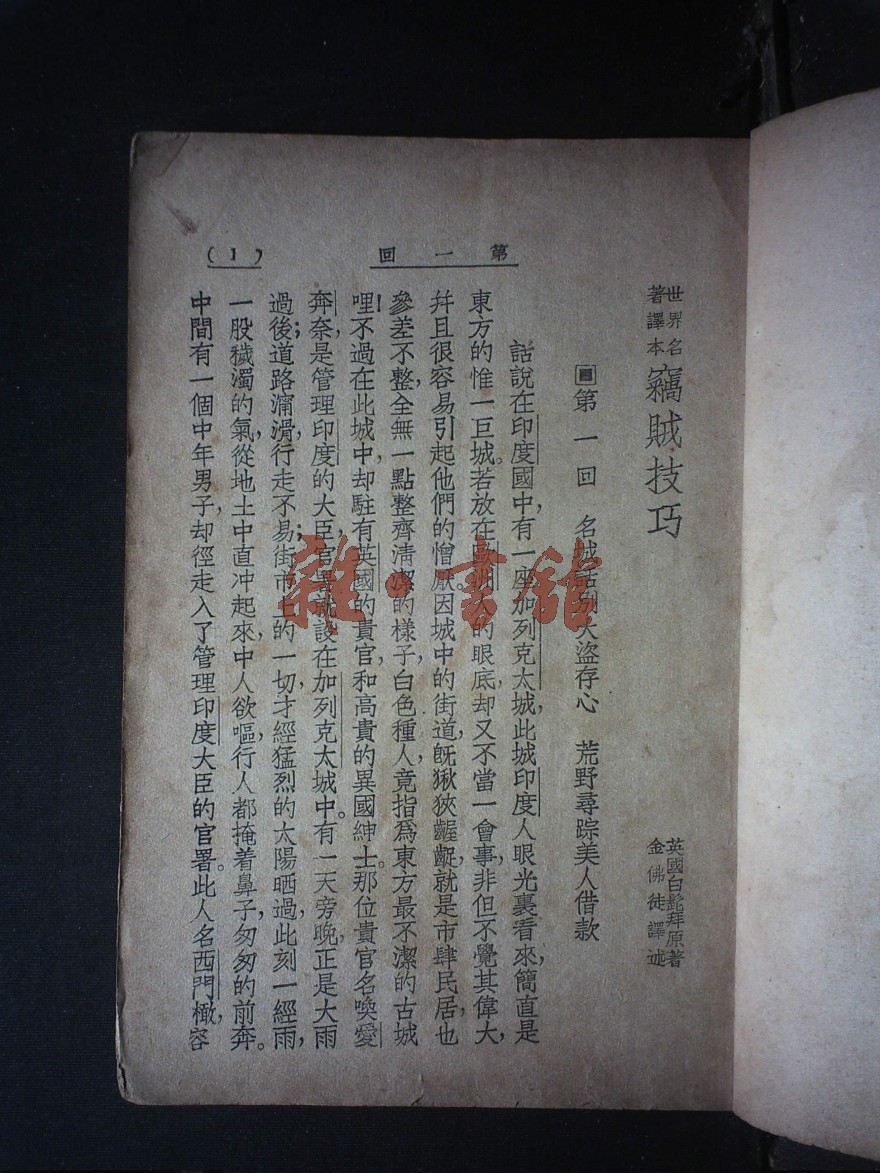 世界名
著譯本
竊賊技巧
英國白髭拜原著
金佛徒譯述
第一回
(1)
第一回　名城話別大盜存心　荒野尋踪美人借款
話說在印度國中，有一座加列克太城，此城印度人眼光裏看來，簡直是
東方的惟一巨城。若放在歐洲人的眼底，却又不當一會事，非但不覺其偉大，
幷且很容易引起他們的憎厭。因城中的街道，旣狹齷齪，就是市肆民居，也
參差不整，全無一點整齊清潔的樣子，白色種人，竟指爲東方最不潔的古城
哩！不過在此城中，却駐有英國的貴官，和高貴的異國紳士。那位貴官名喚愛
奔奈，是管理印度的大臣，官署就設在加列克太城中。有一天旁晚，正是大雨
過後；道路濘滑，行走不易；街市上的一切，才經猛烈的太陽晒過，此刻一經雨，
一股穢濁的氣，從地土中直冲起來，中人欲嘔，行人都掩着鼻子，匆匆的前奔。
中間有一個中年男子，却徑走入了管理印度大臣的官署。此人名西門橄，容
雜·書館